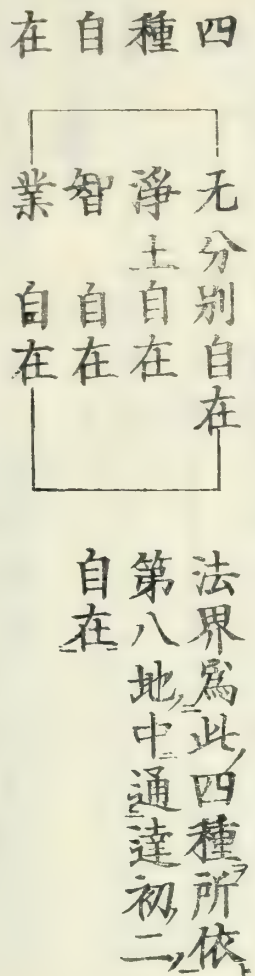 四種自在
无分別自在
淨土自在
智自在
業自在
法界爲此四種所依
第八地中通達初二
自在